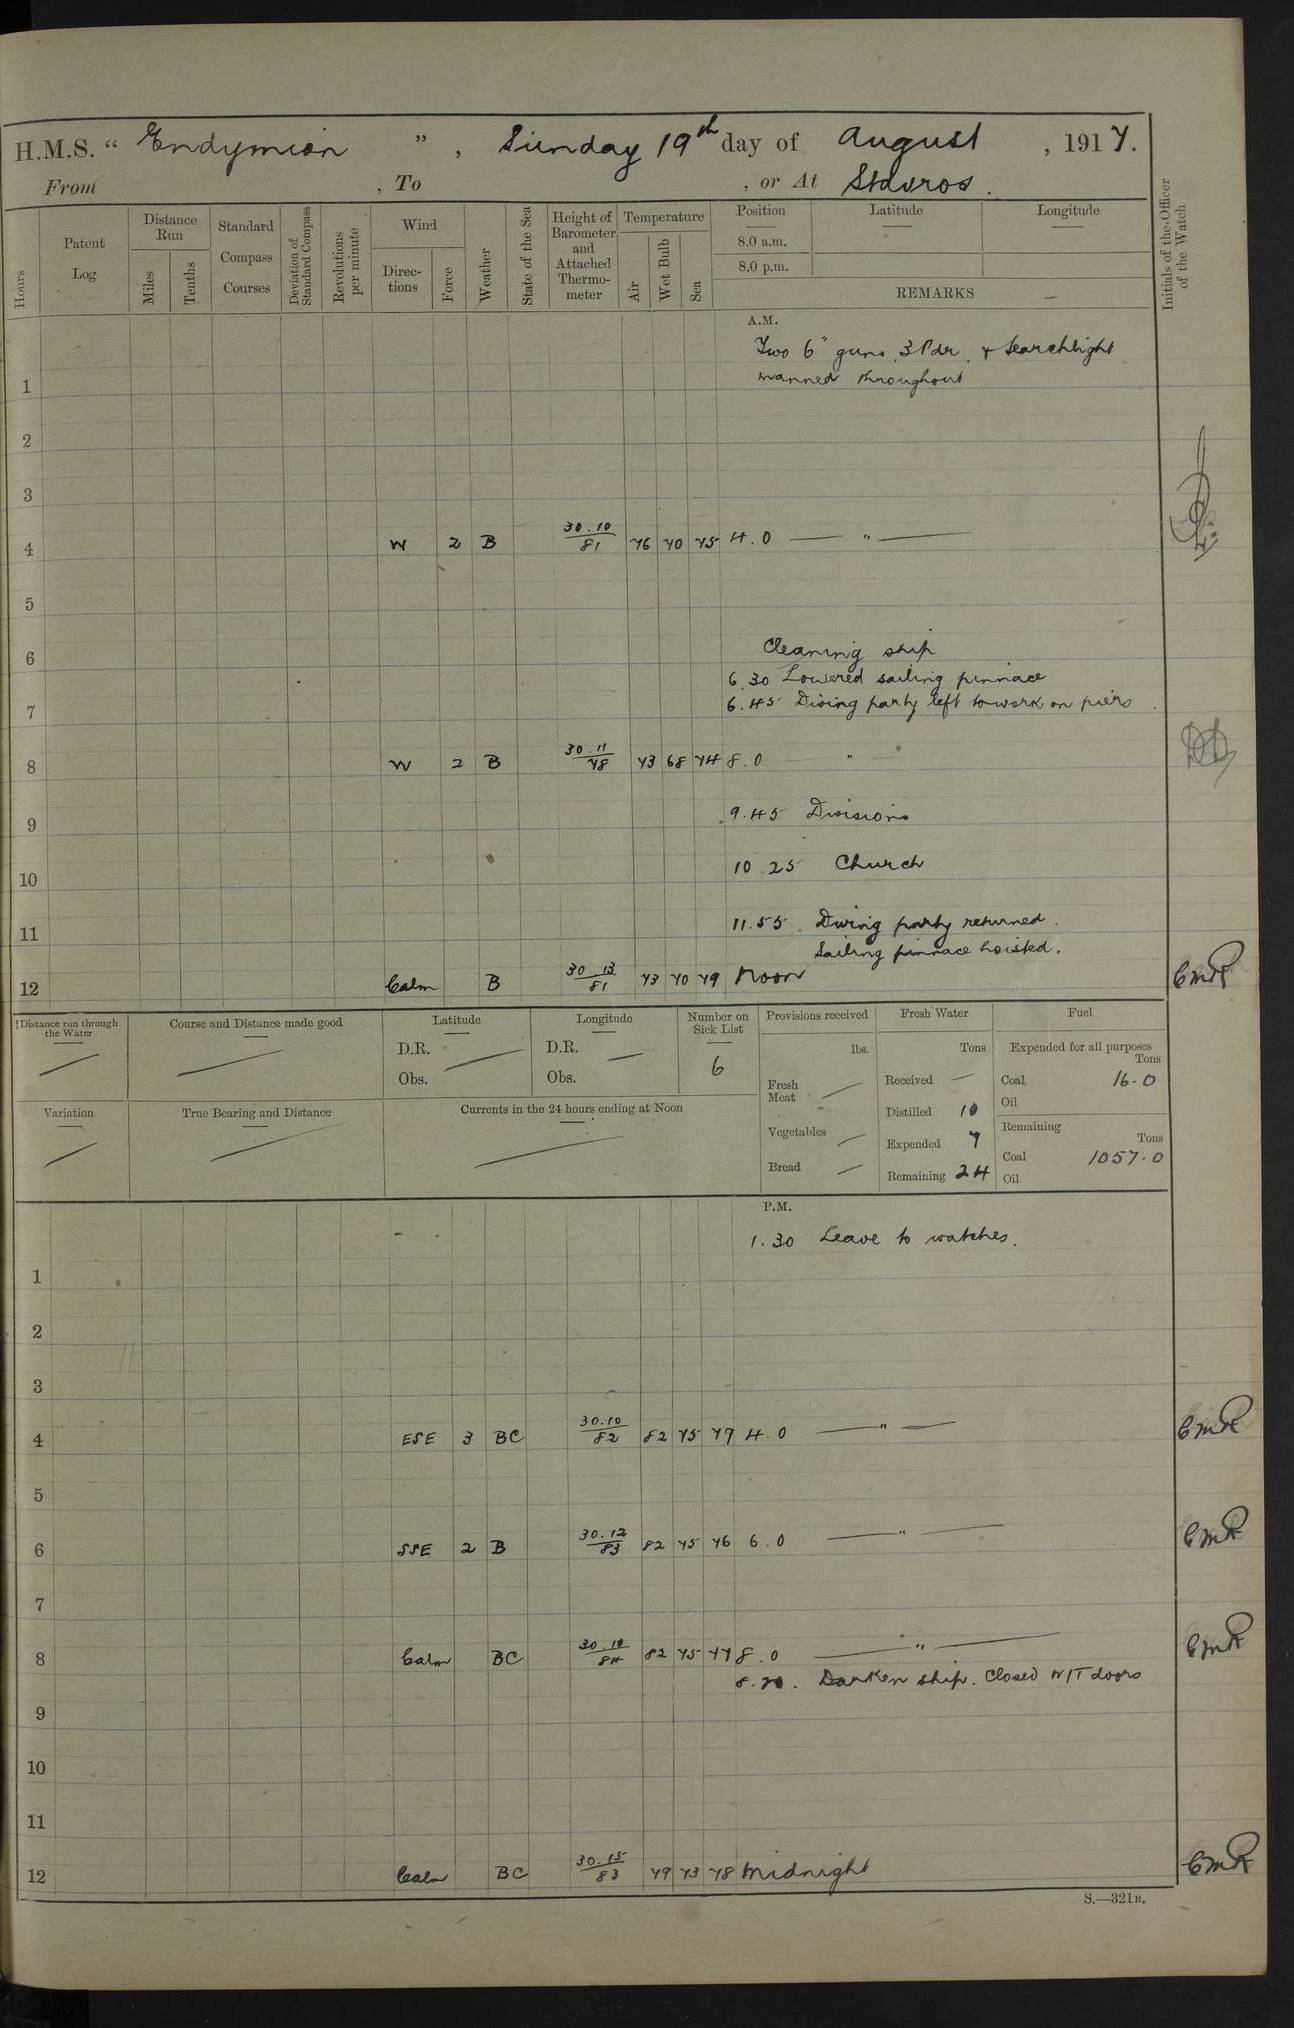 H.M.S. " Endymion " , Sunday 19th day of August , 1917.
From , To , or At Stavros.
Hours
Patent Log
Distance Run
Miles
Tenths
Standard Compass Courses
Deviation of Standard Compass
Revolutions per minute
Wind
Directions
Force
Weather
State of the Sea
Height of Barometer and Attached Thermometer
Temperature
Air
Wet Bulb
Sea
Position
8.0 a.m.
8.0 p.m.
Latitude
Longitude
REMARKS
Initials of the Officer of the Watch
A.M.
Two 6" guns, 3 Pdr. & Searchlight
manned throughout
1
2
3
4 W 2 B 30.10/81 76 70 75 4.0 — " —
5
6 Cleaning ship
6.30 Lowered sailing pinnace
7 6.45 Diving party left to work on piers
8 W 2 B 30.11/78 73 68 74 8.0 "
9 9.45 Divisions
10 10.25 Church
11 11.55. Diving party returned.
Sailing pinnace hoisted.
12 Calm B 30.13/81 73 70 79 Noon CMR
Distance run through the Water
Course and Distance made good
Latitude
D.R.
Obs.
Longitude
D.R.
Obs.
Number on Sick List
6
Provisions received
lbs.
Fresh Meat —
Vegetables —
Bread —
Fresh Water
Tons
Received —
Distilled 10
Expended 7
Remaining 24
Fuel
Expended for all purposes
Tons
Coal 16.0
Oil
Remaining
Tons
Coal 1057.0
Oil
Variation
True Bearing and Distance
Currents in the 24 hours ending at Noon
P.M.
1.30 Leave to watches.
1
2
3
4 ESE 3 BC 30.10/82 82 75 79 4.0 — " — CMR
5
6 SSE 2 B 30.12/83 82 75 76 6.0 — " — CMR
7
8 Calm BC 84 82 75 77 8.0 — " — CMR
Darken ship. Closed W/T doors
9
10
11
12 Calm BC 30.15/83 79 73 78 Midnight CMR
S.—321B.